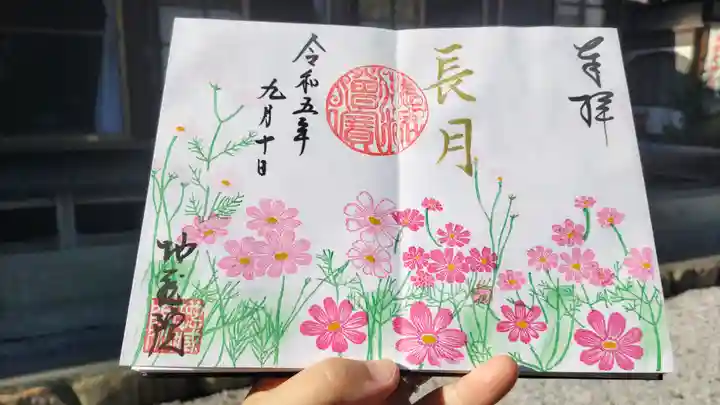 奉拝
長月
令和五年
九月十日
地蔵院